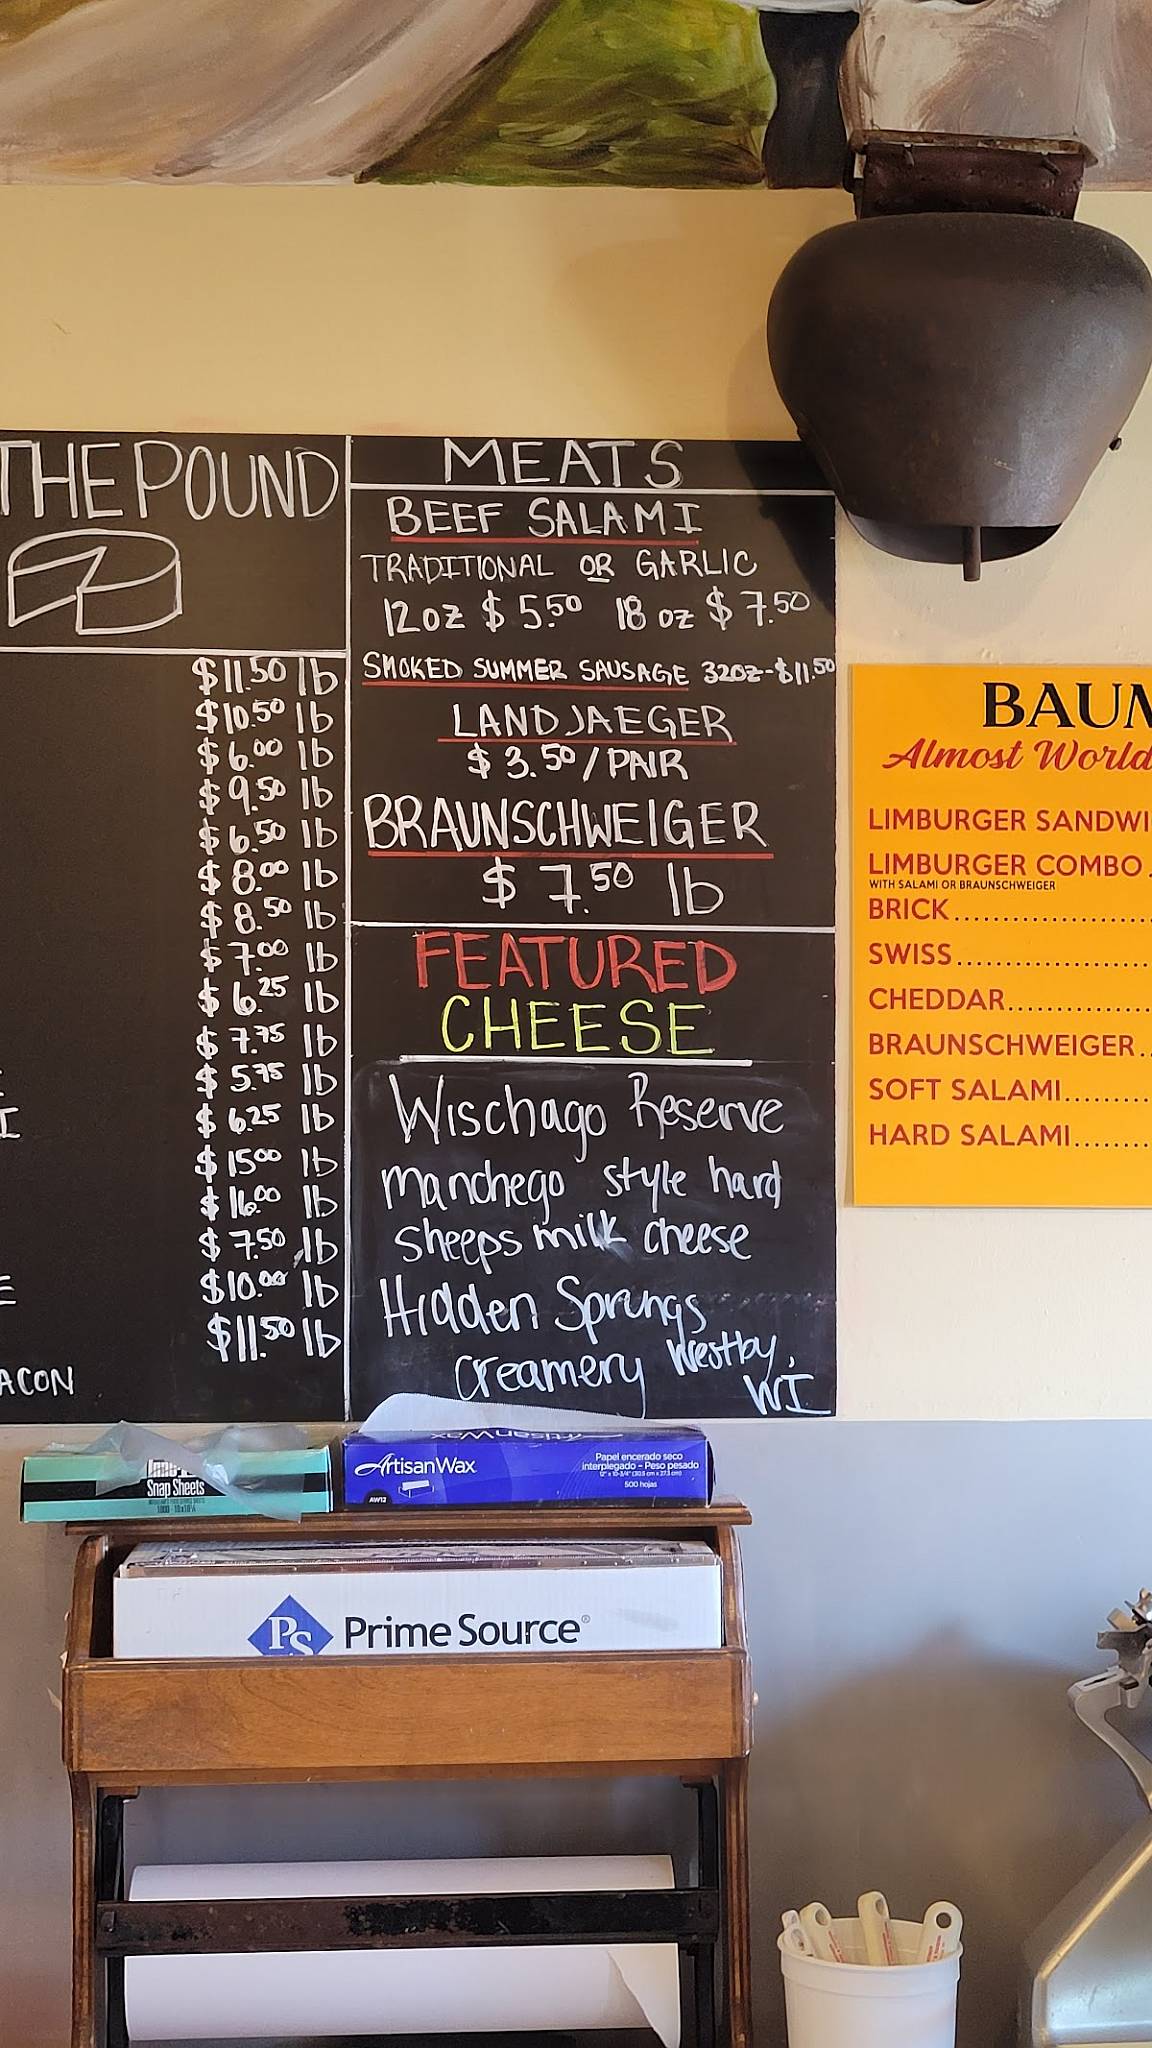 THE POUND
$11.50 lb
$10.50 lb
$6.00 lb
$9.50 lb
$6.50 lb
$8.00 lb
$8.50 lb
$7.00 lb
$6.25 lb
$7.75 lb
$5.75 lb
$6.25 lb
$15.00 lb
$16.00 lb
$7.50 lb
$10.00 lb
$11.50 lb
ACON
MEATS
BEEF SALAMI
TRADITIONAL OR GARLIC
12oz $5.50 18 oz $7.50
SMOKED SUMMER SAUSAGE 32oz-$11.50
LANDJAEGER
$3.50/PAIR
BRAUNSCHWEIGER
$7.50 lb
FEATURED
CHEESE
Wischago Reserve
manchego style hard
sheeps milk cheese
Hidden Springs
creamery Westby,
WI
BAUM
Almost World
LIMBURGER SANDWI
LIMBURGER COMBO
WITH SALAMI OR BRAUNSCHWEIGER
BRICK
SWISS
CHEDDAR
BRAUNSCHWEIGER
SOFT SALAMI
HARD SALAMI
Snap Sheets
ArtisanWax
Papel encerado seco
interplegado - Peso pesado
12" x 10-3/4" (30.5 cm x 27.3 cm)
500 hojas
AW12
PS Prime Source®